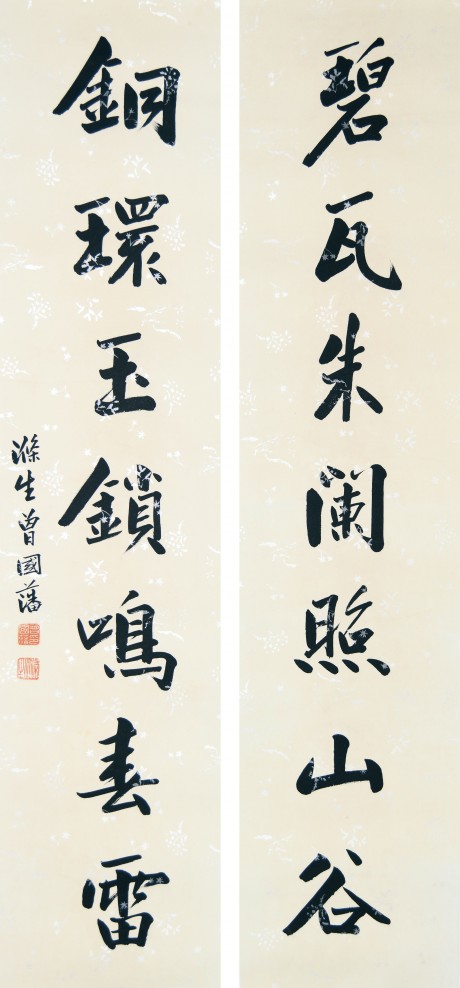 碧瓦朱闌照山谷
銅環玉鎖鳴春雷
滌生曾國藩